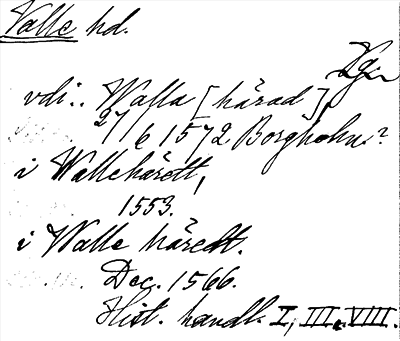 Valle hd.
Vg.
vdi.. Walla [härad]
27/6 1572 Borgholm?
i Wallehärett,
1553.
i Walle häredt.
Dec. 1566.
Hist. handl. I, III, VIII.